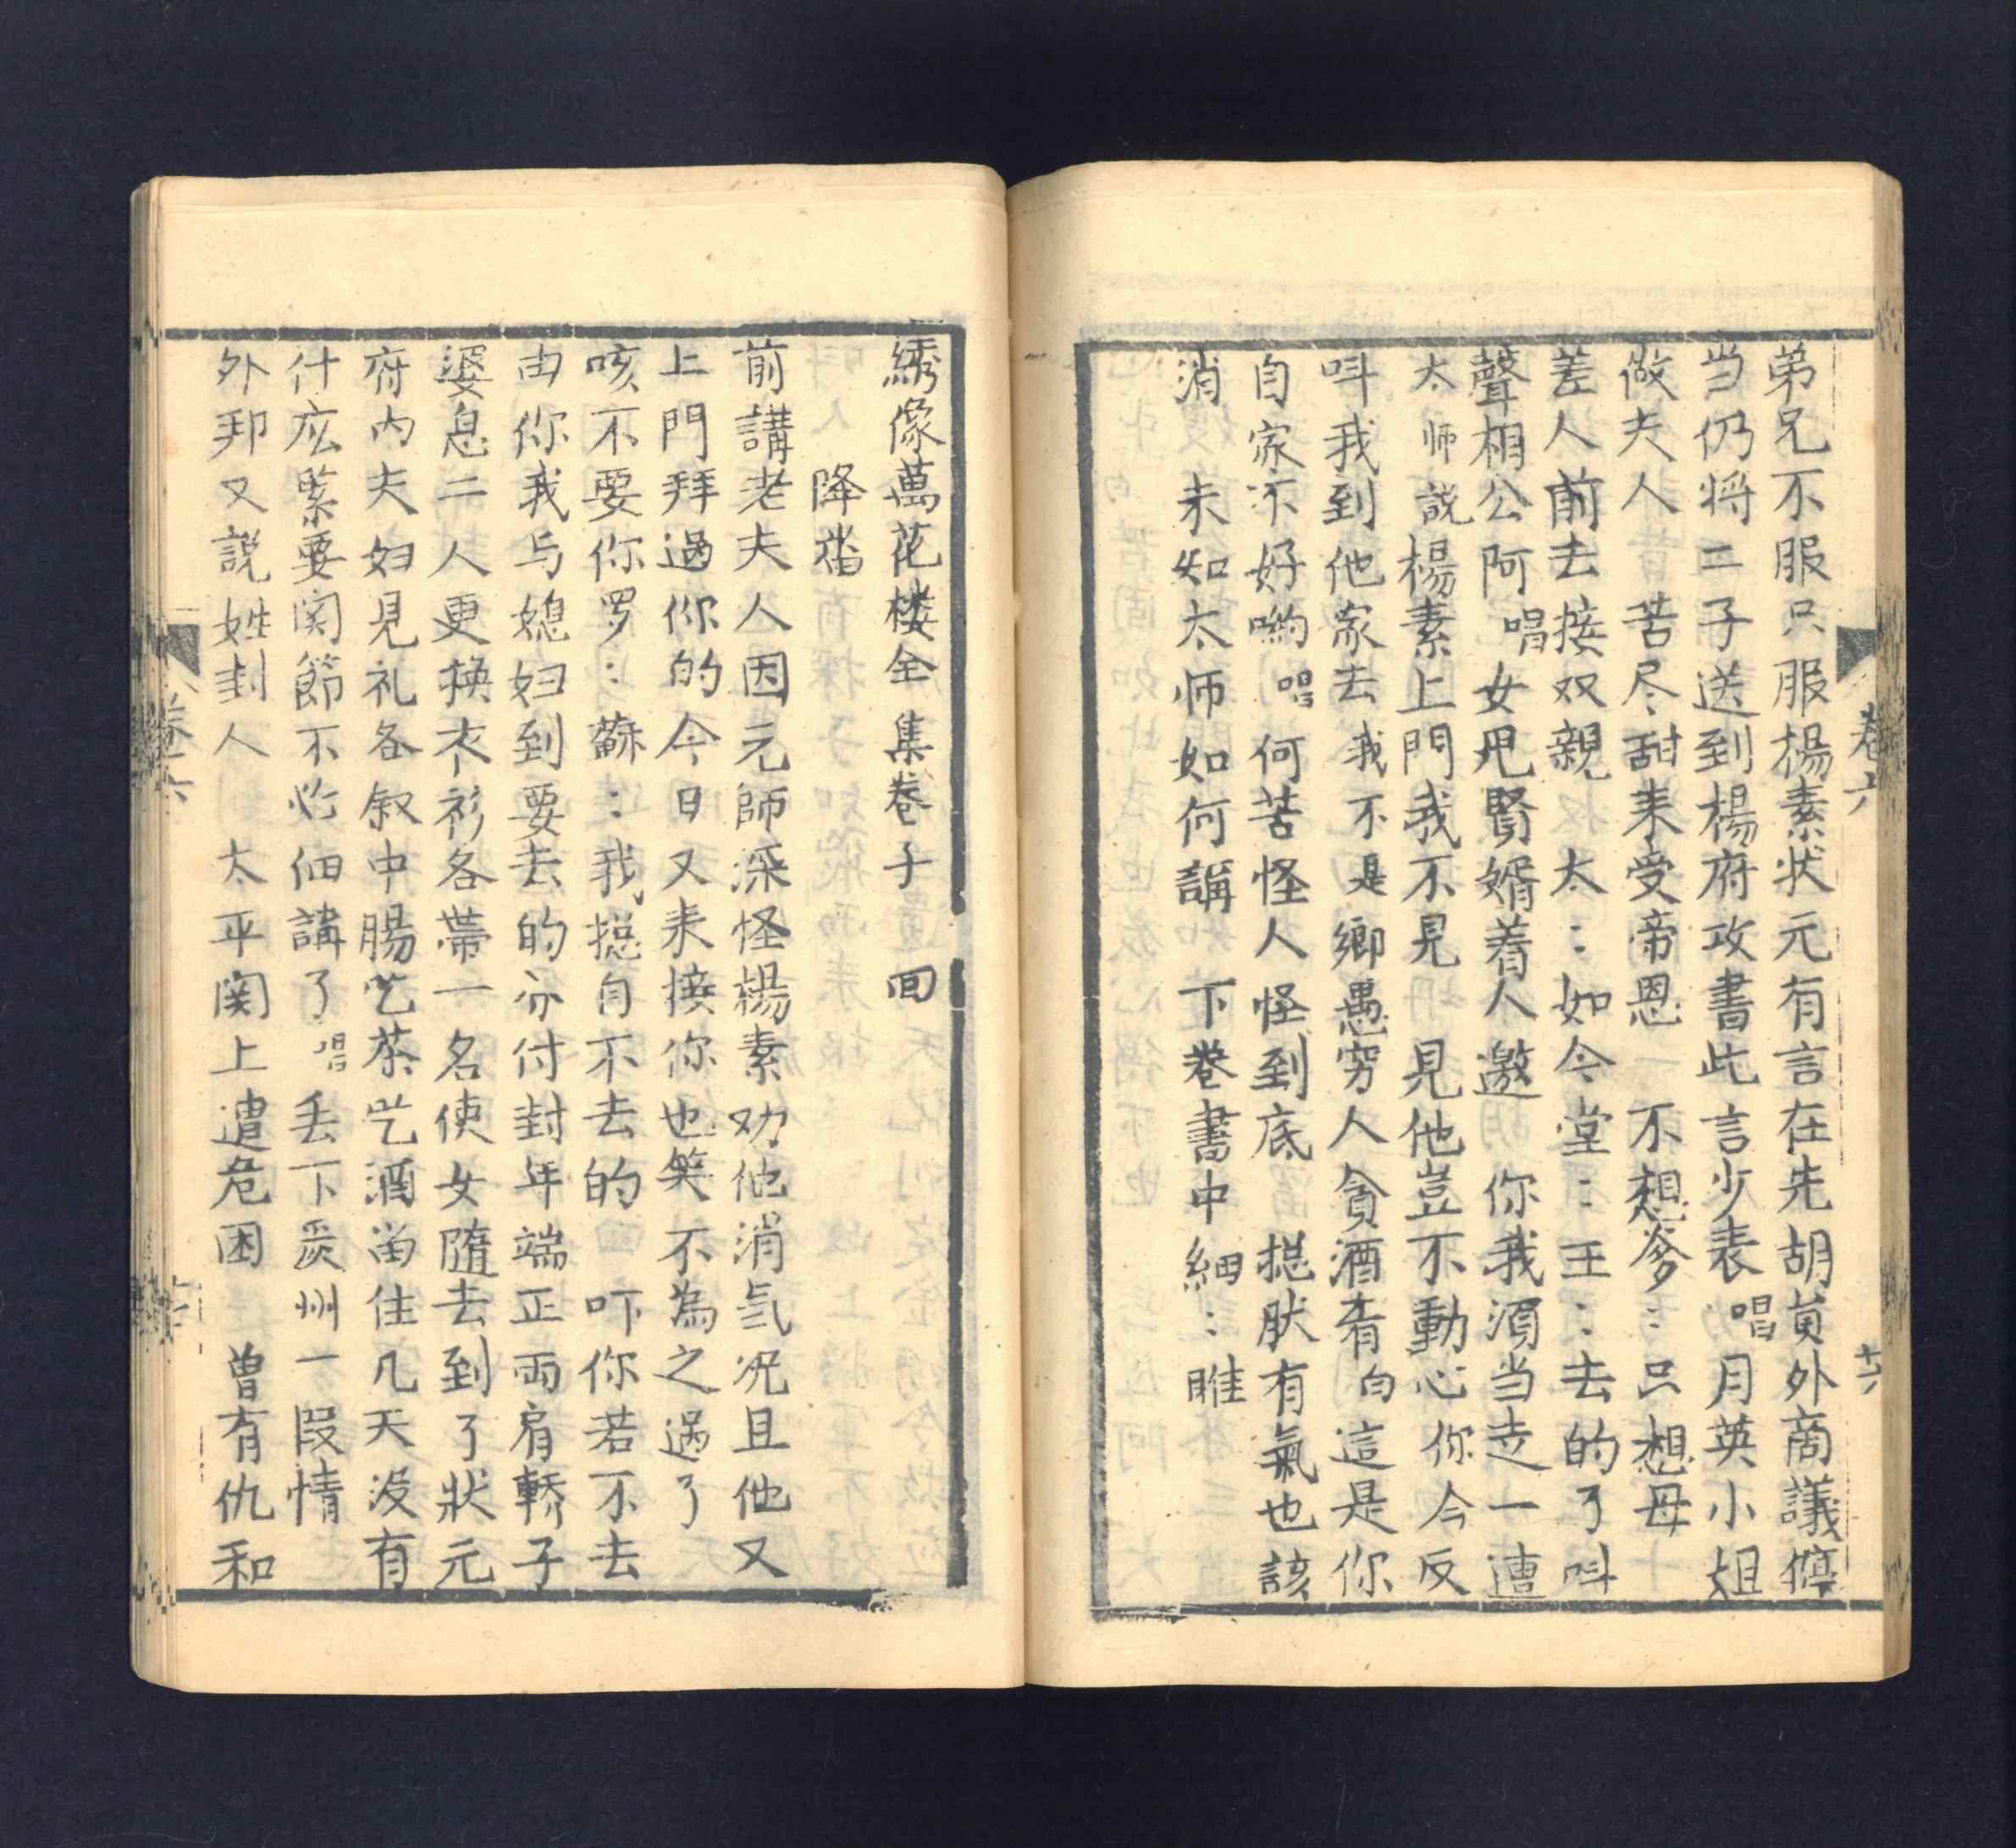 卷六
十六
弟兄不服只服楊素状元有言在先胡員外商議停
当仍将二子送到楊府攻書此言少表唱月英小姐
做夫人 苦尽甜来受帝恩 不想爹:只想母
差人前去接双親 太:如今堂:王:去的了呌
聲相公阿唱女兕賢婿着人邀 你我須当走一遭
太师説楊素上門我不見 見他豈不動心你今反
呌我到他家去 我不是鄉愚穷人貪酒肴白這是你
自家不好喲唱何苦怪人怪到底 捴肰有氣也該
消 未知太师如何講 下巻書中細:睢
綉像萬花楼全集卷子 回
降
前講老夫人因元師深怪楊素劝他消氣况且他又
上門拜過你的今日又来接你也筭不為之過了
咳不要你罗:蘇:我捴自不去的 吓你若不去
由你我与媳妇到要去的分付封年端正両肩轎子
婆息二人更換衣衫各帶一名使女隨去到了狀元
府内夫妇見礼各叙中腸吃茶吃酒畄住几天没有
什庅緊要関節不必细講了唱丢下炭州一段情
外邦又説姓封人 太平関上遭危困 曾有仇和
卷六